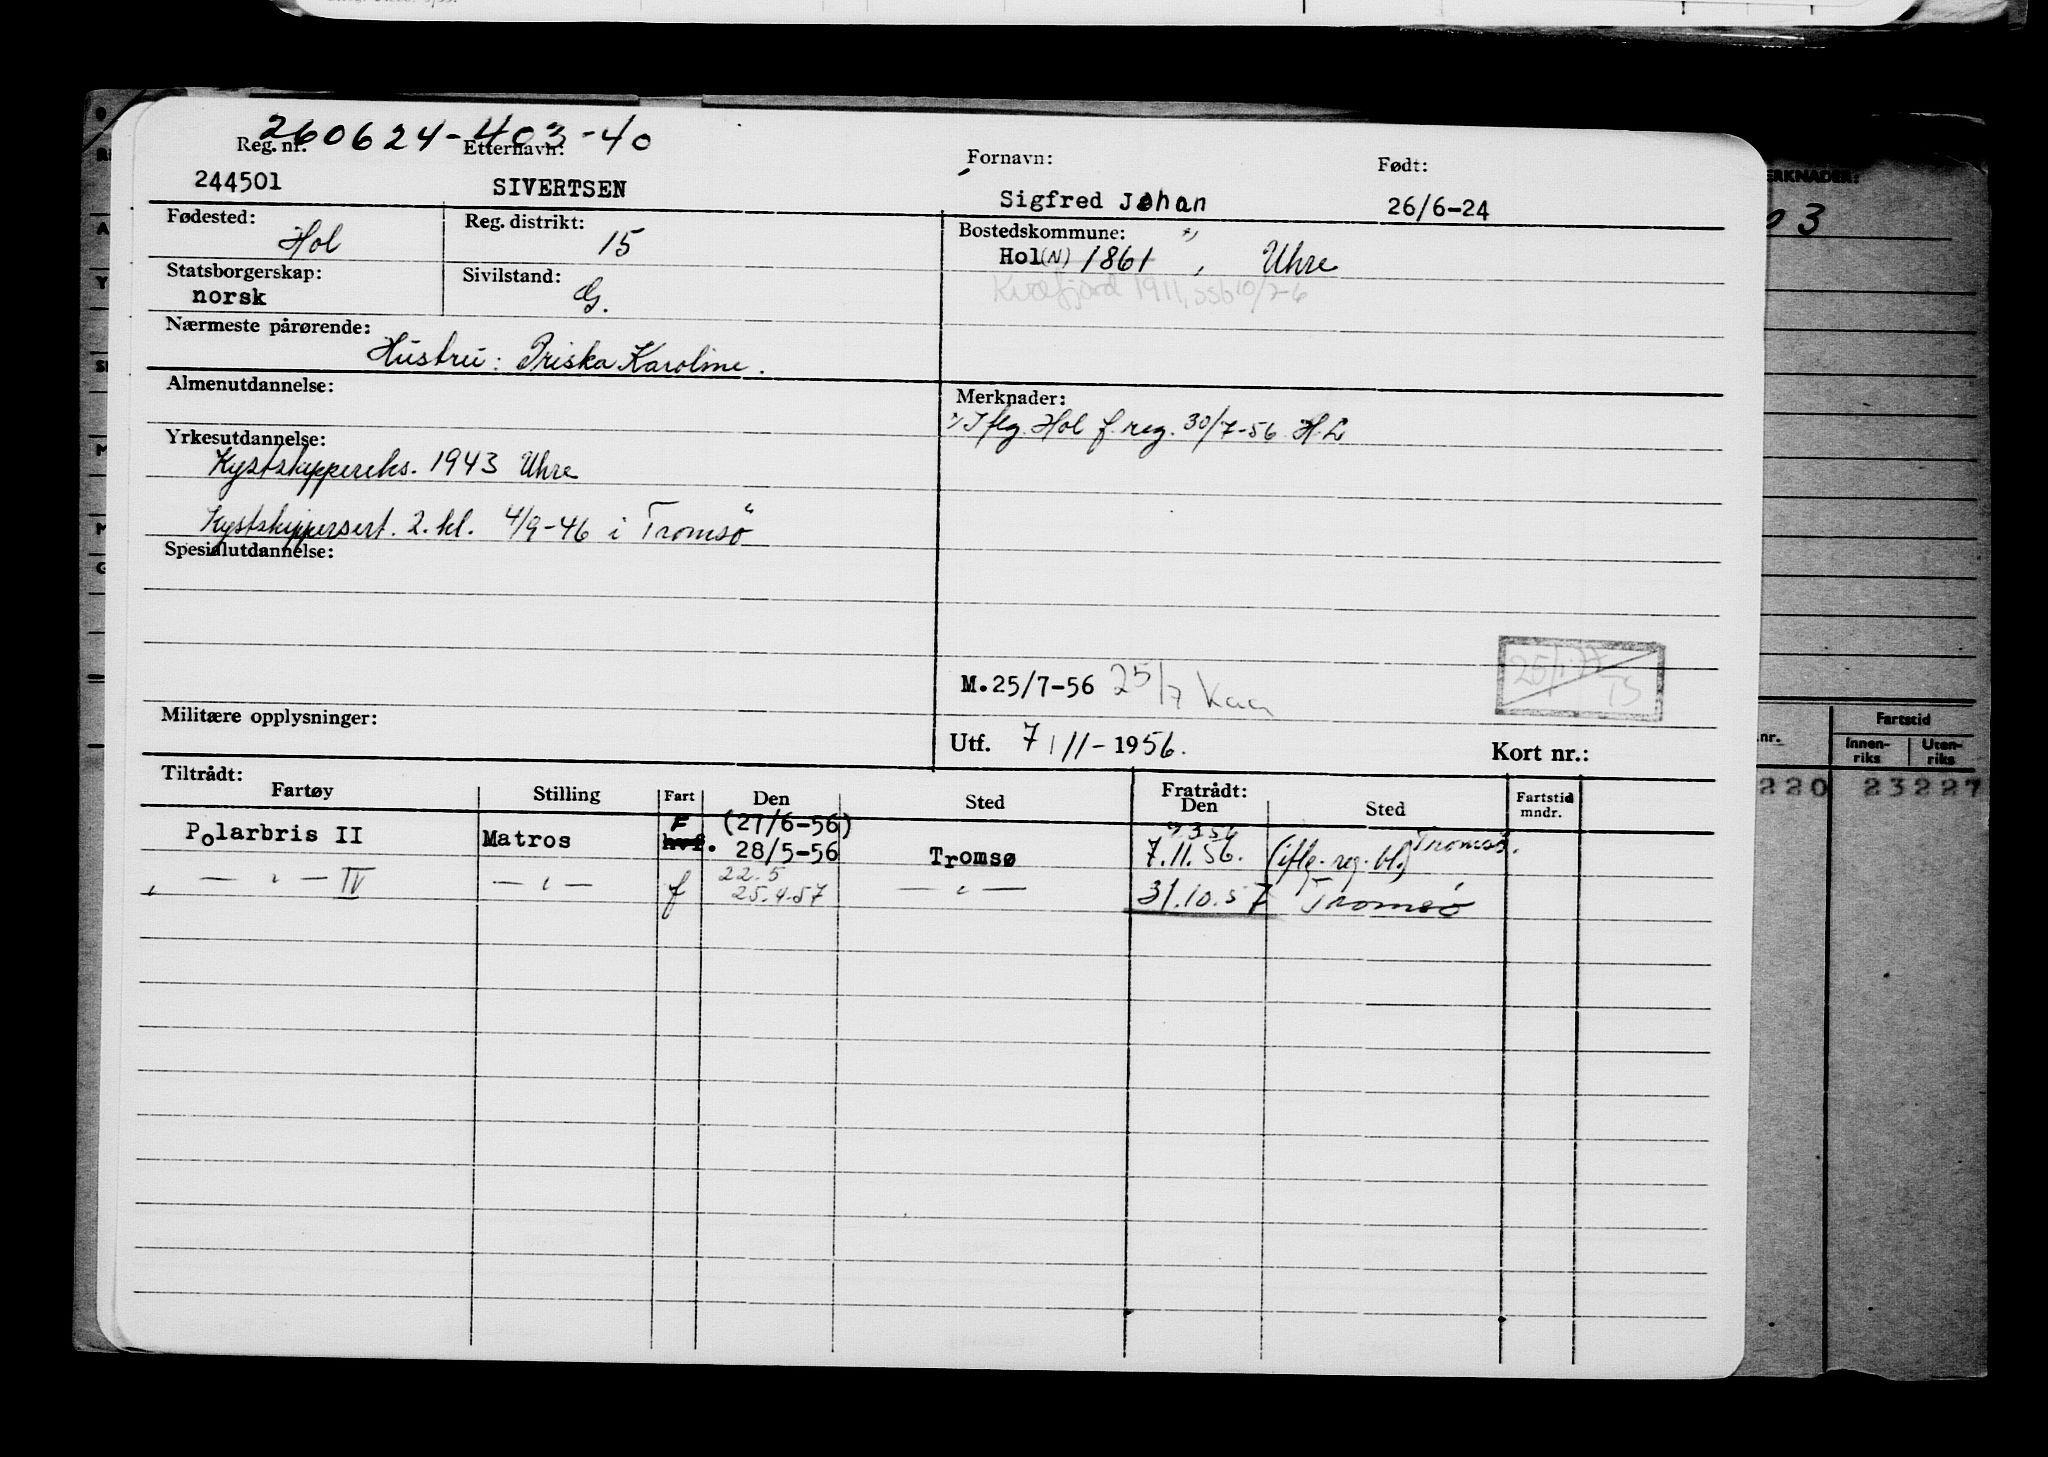 260624-403-40
Reg. nr. Etternavn: Fornavn: Født:
244501 SIVERTSEN Sigfred Johan 26/6-24
Fødested: Hol Reg. distrikt: 15 Bostedskommune:
Hol (N) 1861, Uhre
Statsborgerskap: norsk Sivilstand: G.
Kvæfjord 1911, ssb 10/7-6
Nærmeste pårørende:
Hustru: Priska Karoline.
Almenutdannelse:
Merknader:
Iflg. Hol f.reg. 30/7-56 H.L
Yrkesutdannelse:
Kystskippereks. 1943 Uhre
Kystskippersert. 2. kl. 4/9-46 i Tromsö
Spesialutdannelse:
M.25/7-56 25/7 Kaa
Militære opplysninger:
Utf. 7/11-1956. Kort nr.:
Tiltrådt: Fratrådt:
Fartøy Stilling Fart Den Sted Den Sted Fartstid mndr.
Polarbris II Matros F hvf. (27/6-56) 28/5-56 Tromsø 7.11.56. (iflg. reg. bl.) Tromsø.
— " — IV — " — f 22.5 25.4.57 — " — 31.10.57 Tromsø
MERKNADER:
03
nr.
Fartstid
Innen-riks Uten-riks
220 23227